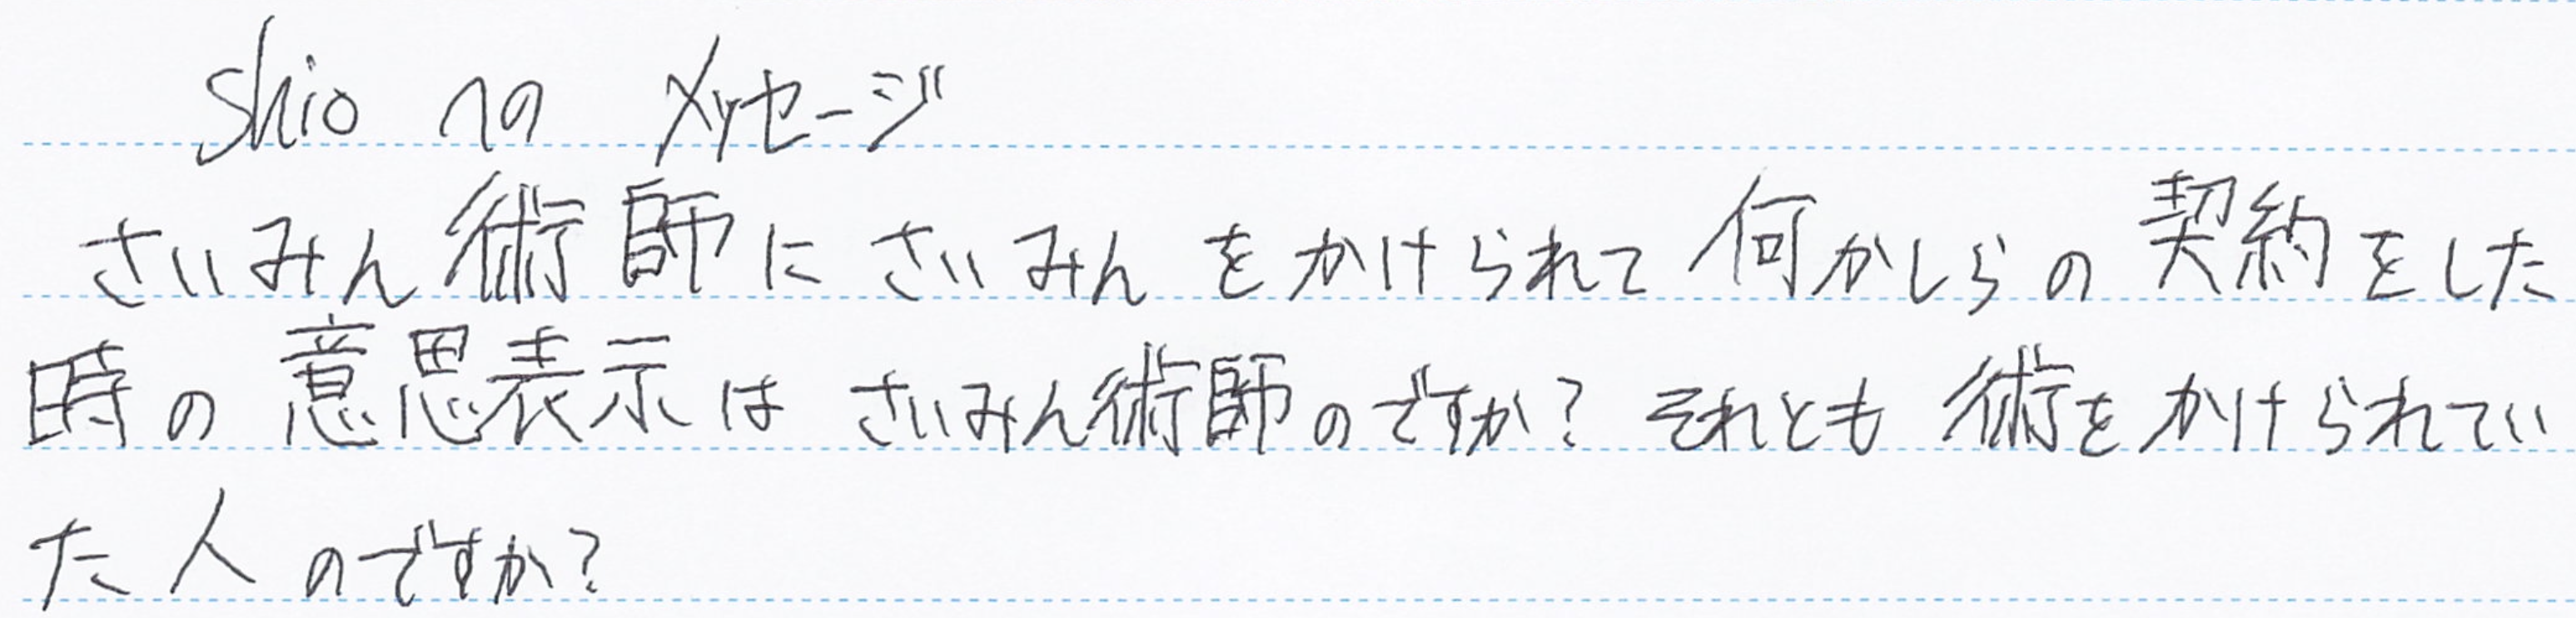 Shioへの メッセージ
さいみん術師にさいみんをかけられて何かしらの契約をした
時の意思表示はさいみん術師のですか？それとも術をかけられてい
た人のですか？